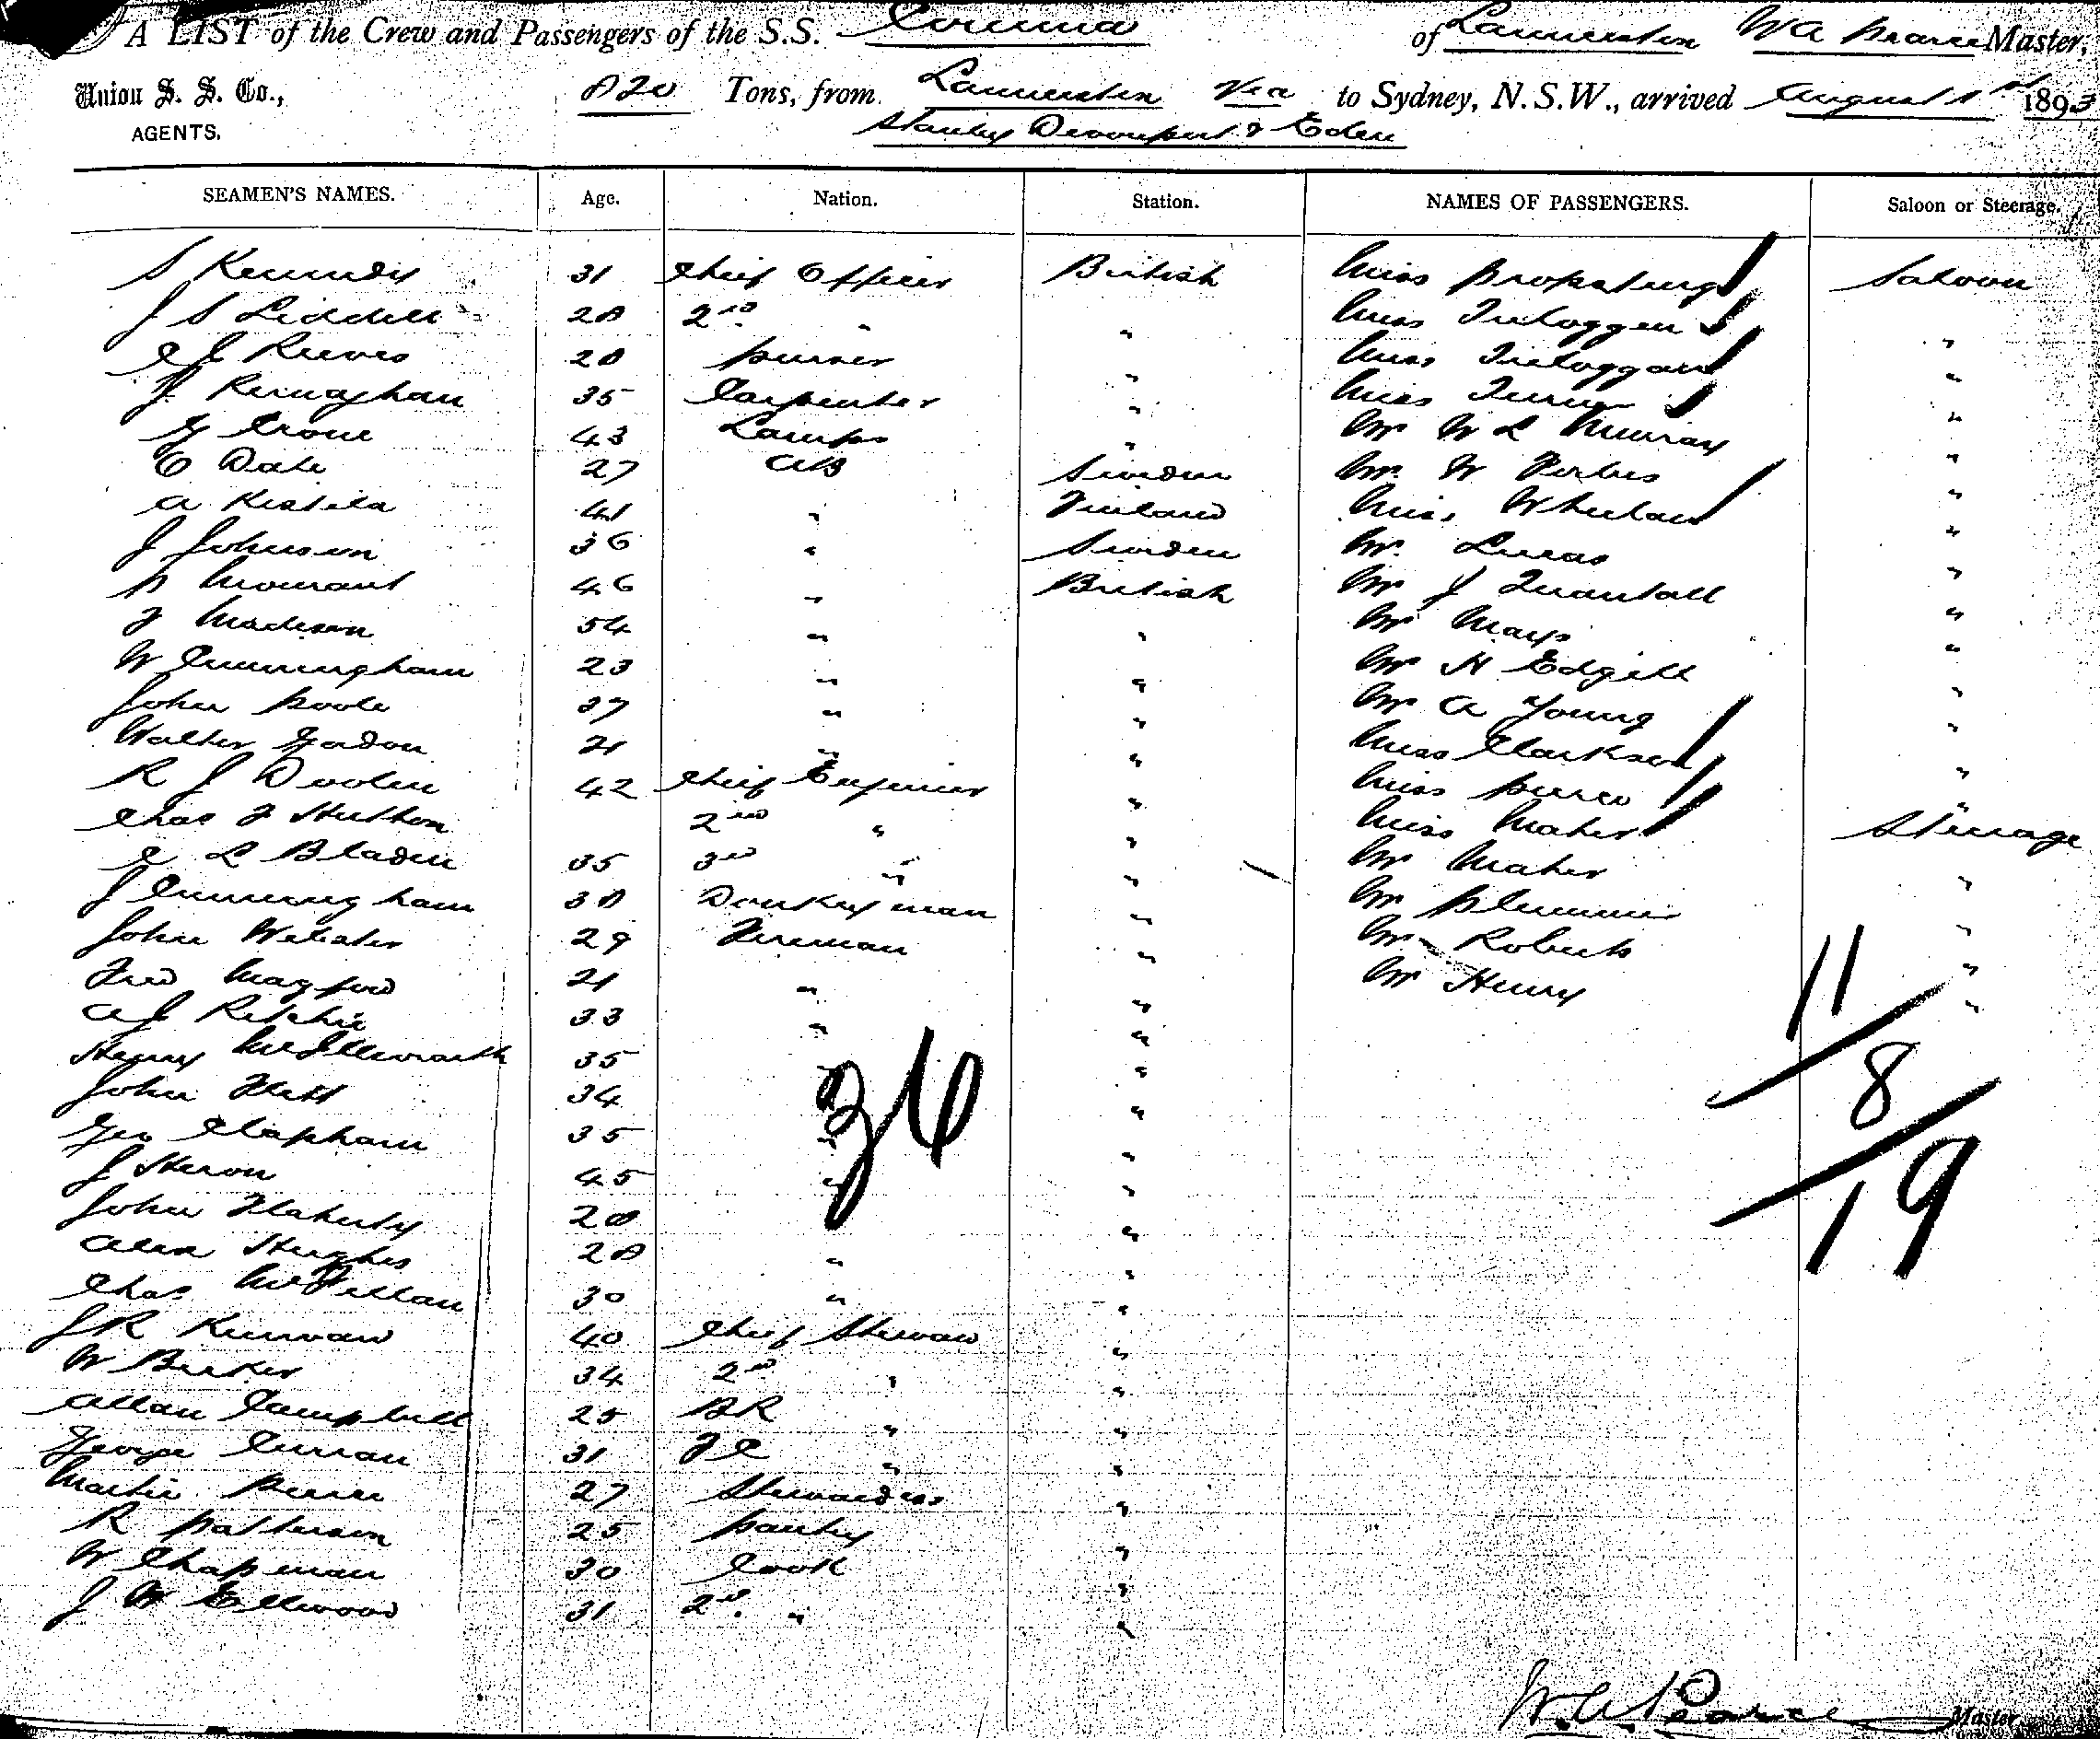 A LIST of the Crew and Passengers of the S.S. Corinna of Launceston W A Pearce Master,
Union S. S. Co., AGENTS. 820 Tons, from Launceston Via to Sydney, N.S.W., arrived August 1st 1893
Stanley Devonport & Eden
SEAMEN'S NAMES. Age. Nation. Station. NAMES OF PASSENGERS. Saloon or Steerage.
S Kennedy 31 Chief Officer British Miss Saloon
J S Liddell 28 2nd " " Miss "
Reeves 28 purser " Miss "
J Kernaghan 35 Carpenter " Miss "
G Crone 43 Lamps " Mr W L Murray "
C Dale 27 AB Sweden Mr W Forbes "
A 41 " Finland Miss Whelan "
J Johnson 36 " Sweden Mr Lucas "
P Mourant 46 " British Mr J Quantall "
J Madison 54 " " Mr Mays "
W Cunningham 23 " " Mr H Edgell "
John Poole 37 " " Mr A Young "
Walter Gordon 21 " " Miss Clarkson "
R J Doolen 42 Chief Engineer " Miss Pierce "
Chas F Hutton 2nd " " Miss Maher Steerage
E L Bladen 35 3rd " " Mr Maher "
J Cunningham 38 Donkeyman " Mr Plummer "
John Webster 29 Fireman " Mr Roberts "
Fred Mayford 21 " " Mr Henry "
A J Ritchie 33 " "
Henry McIllwraith 35 " "
John Flett 34 " "
Geo Clapham 35 " "
J Heron 45 " "
John Flaherty 28 "
Alex Hughes 28 " "
Chas McPhillan 30 " "
J R Kirwan 40 Chief Steward "
W Barker 34 2nd " "
Allan Campbell 25 BR " "
George Curran 31 FC " "
27 Stewardess "
R Patterson 25 pantry "
W Chapman 30 Cook "
J W Ellwood 31 2nd " "
36
11
8
19
W. A. Pearce Master